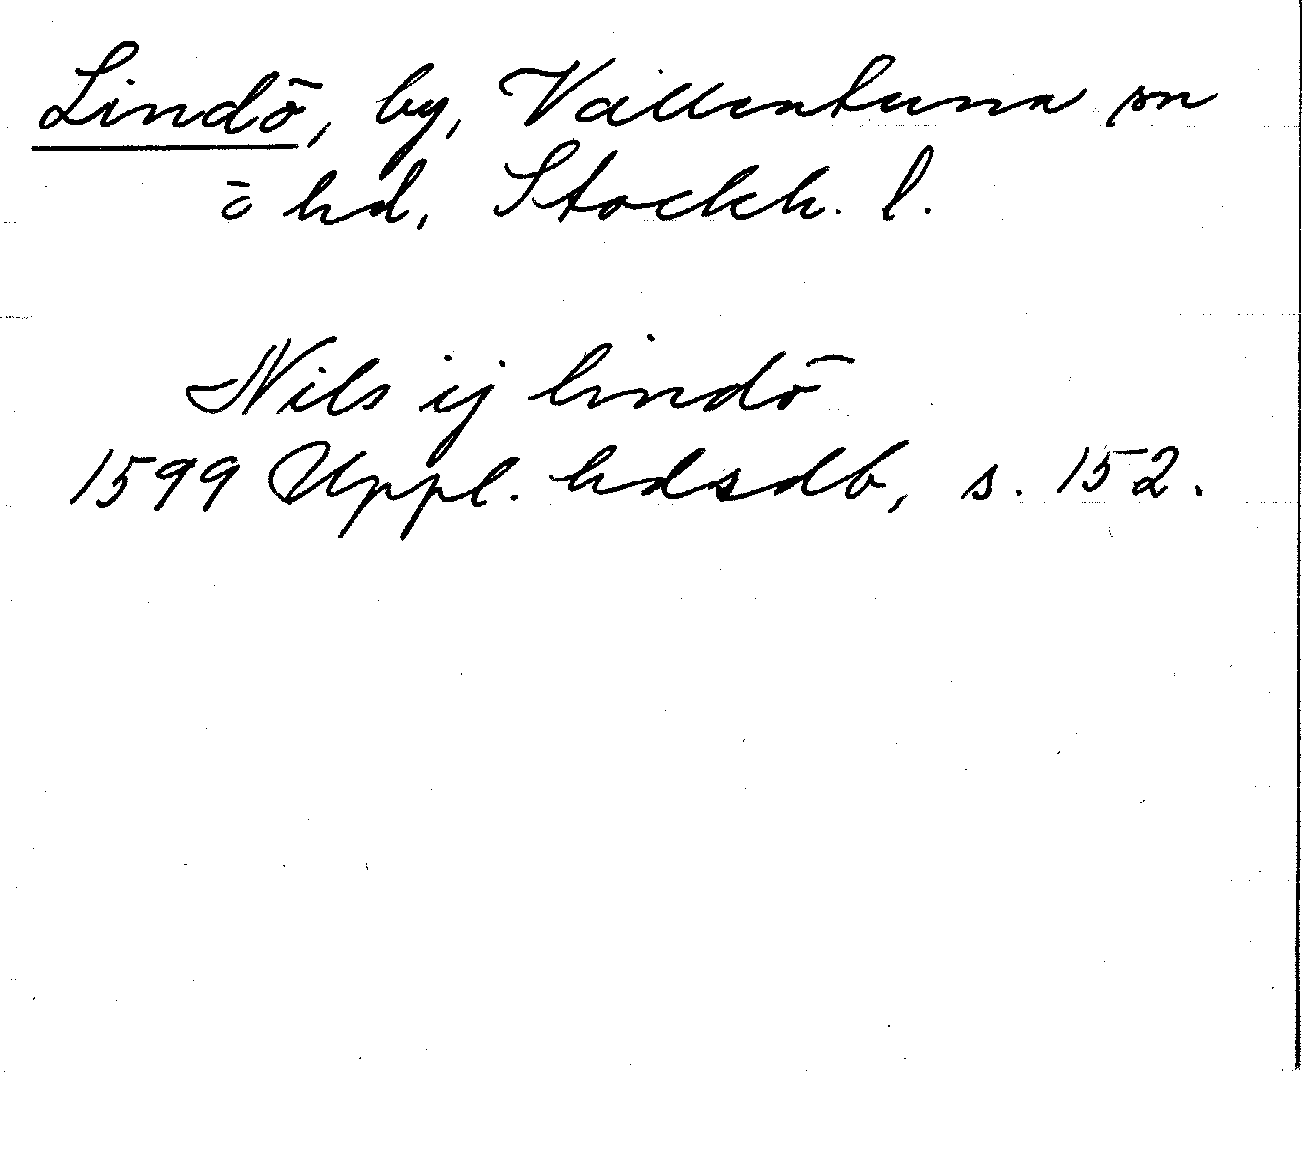 Lindö, by, Vallentuna sn
o hd, Stockh. l.
Nils ij lindö
1599 Uppl. hdsdb, s. 152.